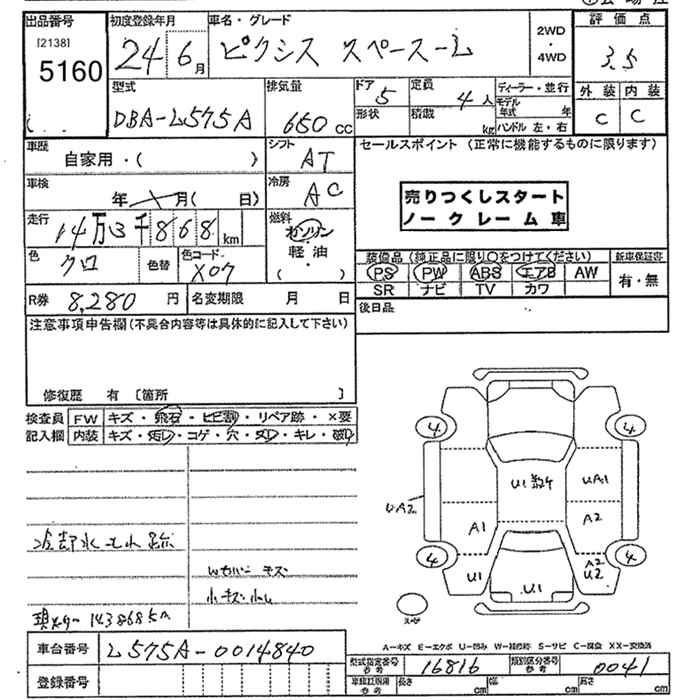 出品番号 初度登録年月 車名・グレード 2WD・4WD 評価点
[2138]
5160 24 6月 ピクシス スペース-L 3.5
型式 排気量 ドア 5 定員 4人 ディーラー・並行 外装 内装
DBA-L575A 650cc 形状 積載 kg モデル年式 年 ハンドル 左・右 C C
車歴 自家用・( ) シフト AT セールスポイント (正常に機能するものに限ります)
車検 年 月( 日) 冷房 AC
売りつくしスタート
ノークレーム車
走行 14万3千868km 燃料 ガソリン・軽油 ( )
色 クロ 色替 色コード X07
装備品 (純正品に限り○をつけてください) 新車保証書
PS PW ABS エアB AW 有・無
SR ナビ TV カワ
R券 8,280円 名変期限 月 日 後日品
注意事項申告欄 (不具合内容等は具体的に記入して下さい)
修復歴 有 [箇所 ]
検査員 FW キズ・飛石・ヒビ割・リペア跡・×要
記入欄 内装 キズ・汚レ・コゲ・穴・スレ・キレ・破レ
4 4
U1 UA1
UA2
A1 A2
冷却水モレ跡
4 4
U1 A2 U2
U1
小キズ 小ヘコ
143868km
A=キズ E=エクボ U=凹み W=補修跡 S=サビ C=腐食 XX=交換済
車台番号 L575A-0014840 型式指定番号 参考 16816 類別区分番号 参考 0041
登録番号 車輌証明書 参考 長さ cm 幅 cm 高さ cm